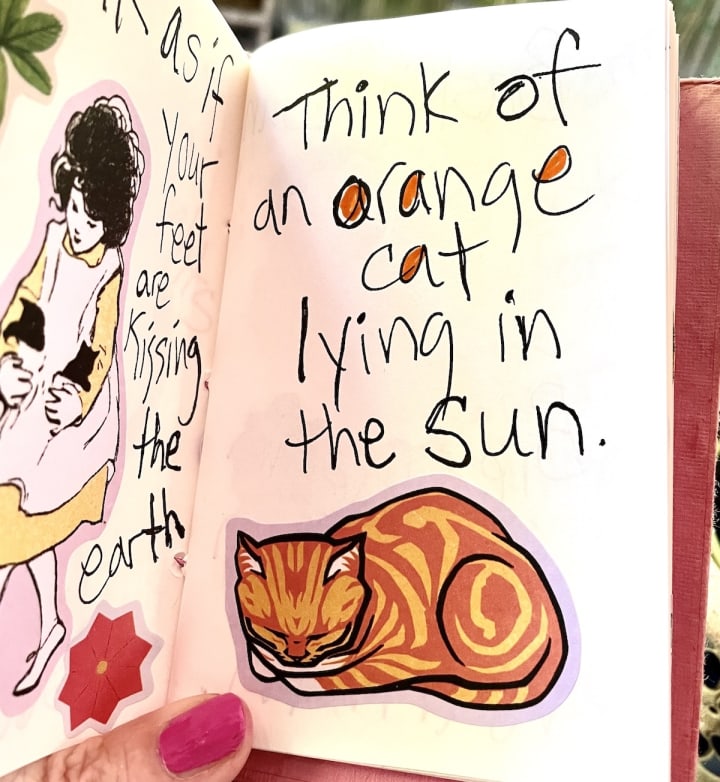 as if
your
feet
are
kissing
the
earth
Think of
an orange
cat
lying in
the sun.